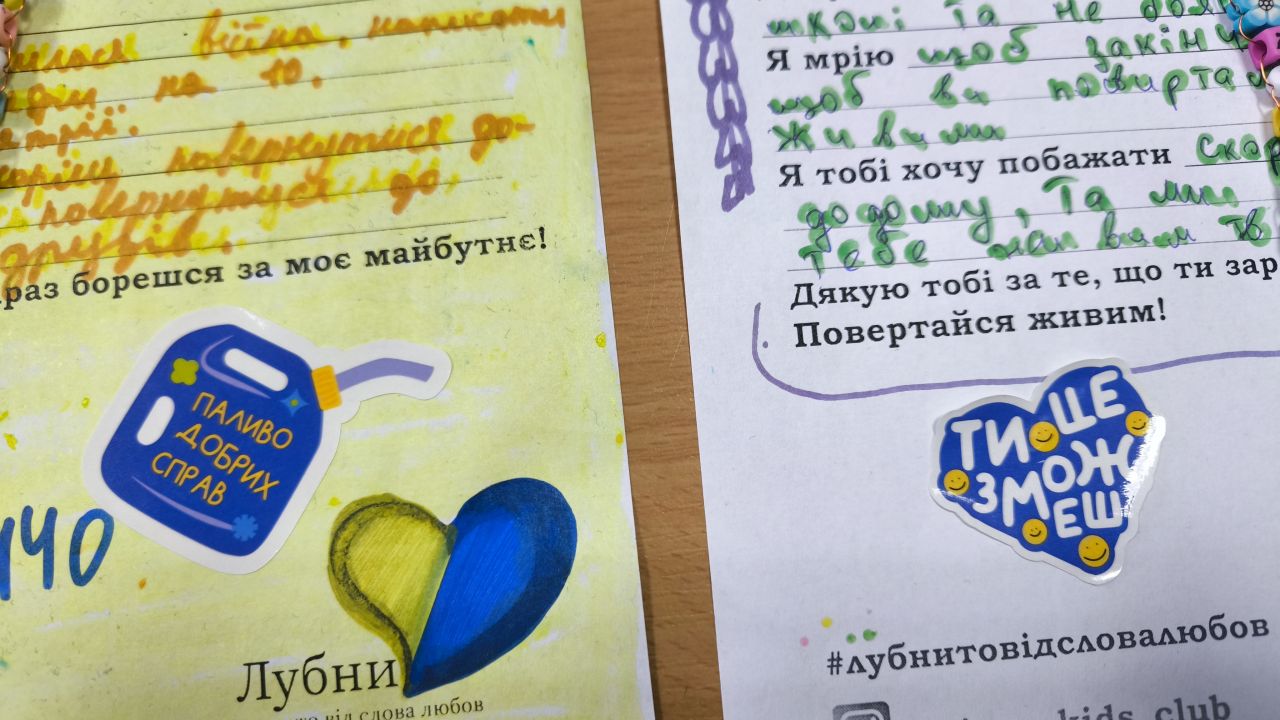 війна, написати
на 10.
повернутися до-
повернутися до
друзів.
раз борешся за моє майбутнє!
ПАЛИВО
ДОБРИХ
СПРАВ
Лубни
від слова любов
та не
Я мрію щоб закінч
щоб ви повертал
живими
Я тобі хочу побажати скор
додому, та ми
тебе
Дякую тобі за те, що ти зар
Повертайся живим!
ТИ ЩЕ
ЗМОЖ
ЕШ
#лубнитовідсловалюбов
kids_club